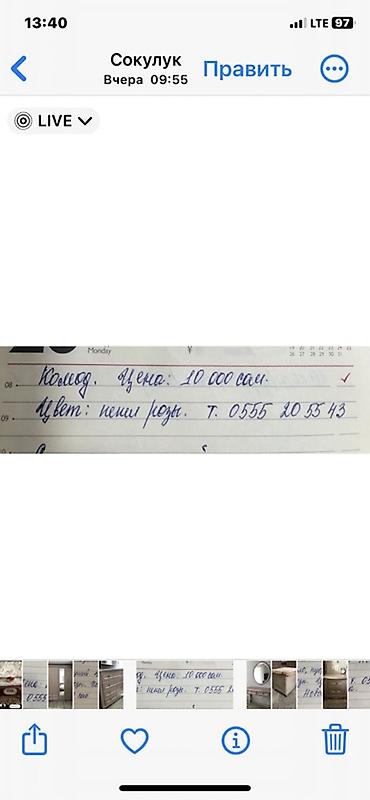 13:40
LTE 97
Сокулук
Вчера 09:55
Править
LIVE
Monday
08 Комод. Цена: 10 000 сом.
09 Цвет: пепел розы. т. 0555 20 55 43